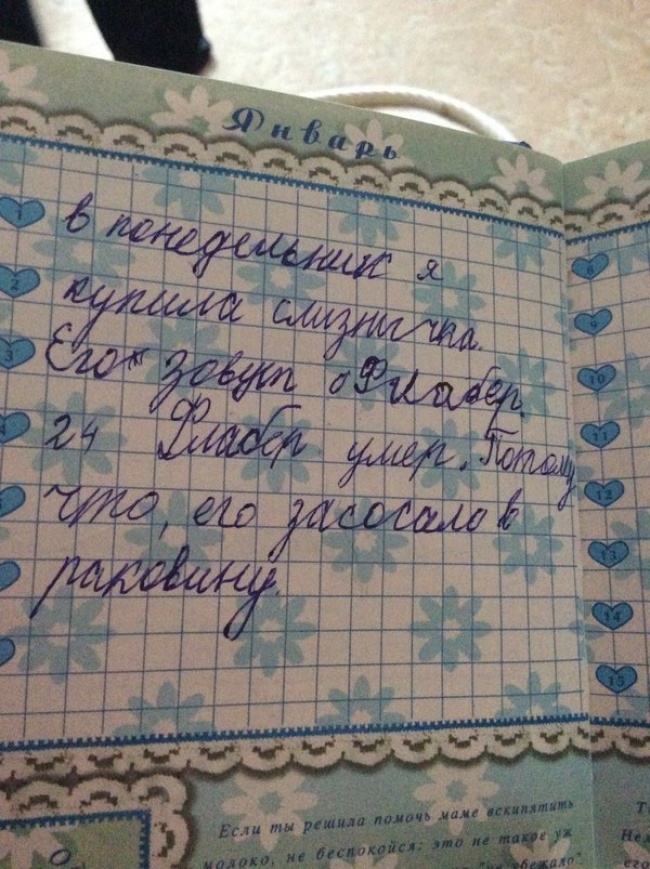 Январь
1
2
3
4
в понедельник я
купила слизнычка.
Его зовут Флабер.
24 Флабер умер. Потому
что, его засосало в
раковину.
8
9
10
11
12
13
14
15
Если ты решила помочь маме вскипятить
молоко, не беспокойся: это не такое уж
"не убежало".